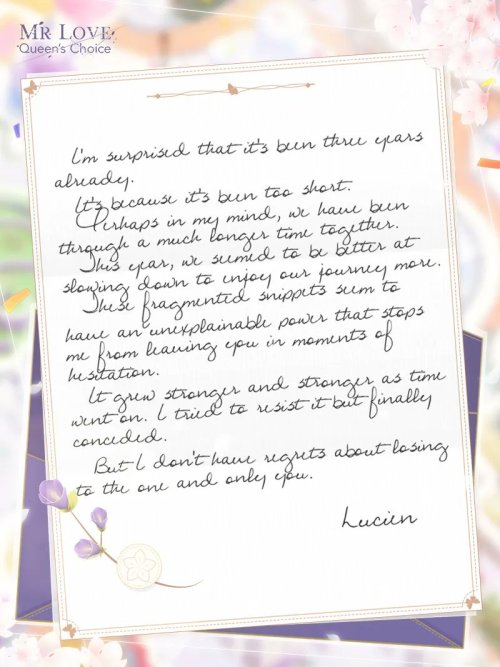 MR LOVE
Queen's Choice
I'm surprised that it's been three years
already.
It's because it's been too short.
Perhaps in my mind, we have been
through a much longer time together.
This year, we seemed to be better at
slowing down to enjoy our journey more.
These fragmented snippets seem to
have an unexplainable power that stops
me from leaving you in moments of
hesitation.
It grew stronger and stronger as time
went on. I tried to resist it but finally
conceded.
But I don't have regrets about losing
to the one and only you.
Lucien